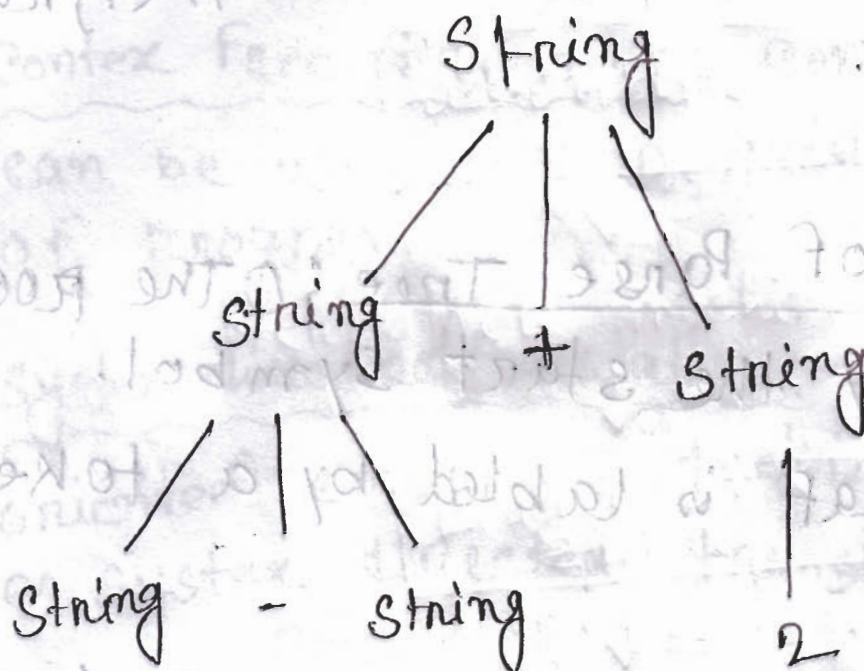 String
String + String
String - String 2